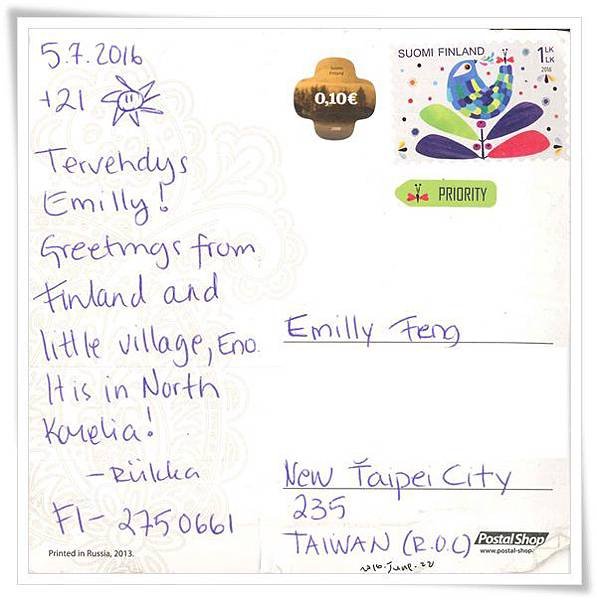 5.7.2016
+21
Tervehdys
Emilly!
Greetings from
Finland and
little village, Eno.
It is in North
Karelia!
- Riikka
FI- 2750661
Printed in Russia, 2013.
Suomi
Finland
0,10€
SUOMI FINLAND
1LK
LK
2016
PRIORITY
Emilly Feng
New Taipei City
235
TAIWAN (R.O.C)
Postal Shop
www.postal-shop.
2016.June.22